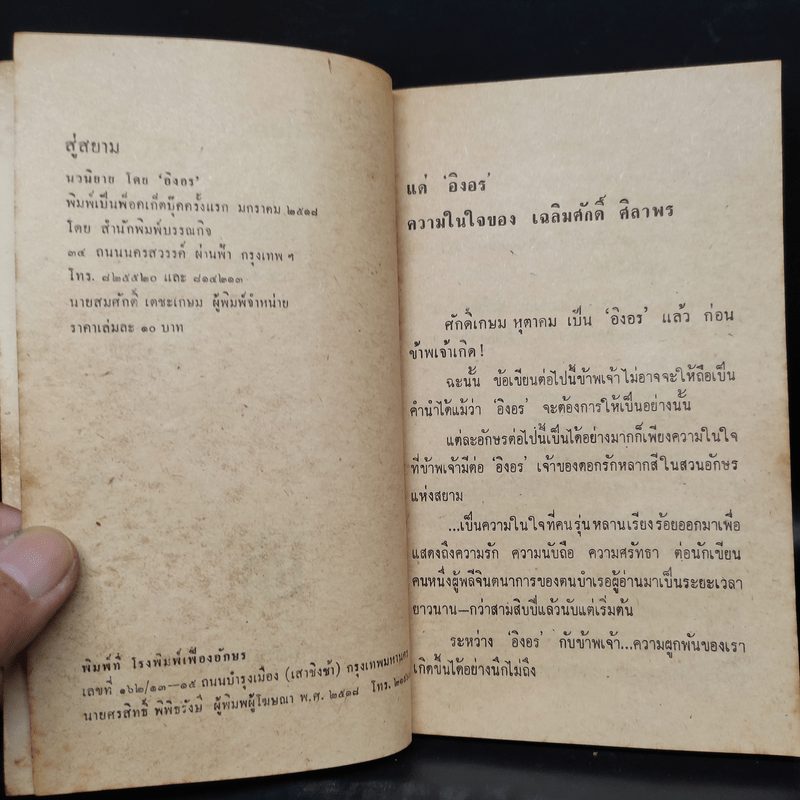 สู่สยาม
นวนิยาย โดย ‘อิงอร’
พิมพ์เป็นพ็อคเก็ตบุ๊คครั้งแรก มกราคม ๒๕๑๘
โดย สำนักพิมพ์บรรณกิจ
๓๔ ถนนนครสวรรค์ ผ่านฟ้า กรุงเทพ ฯ
โทร. ๘๒๕๕๒๐ และ ๘๑๔๒๑๓
นายสมศักดิ์ เตชะเกษม ผู้พิมพ์จำหน่าย
ราคาเล่มละ ๑๐ บาท
พิมพ์ที่ โรงพิมพ์เฟื่องอักษร
เลขที่ ๑๖๒/๑๓—๑๕ ถนนบำรุงเมือง (เสาชิงช้า) กรุงเทพมหานคร
นายศรสิทธิ์ พิพิธรังษี ผู้พิมพ์ผู้โฆษณา พ.ศ. ๒๕๑๘ โทร.
แด่ ‘อิงอร’
ความในใจของ เฉลิมศักดิ์ ศิลาพร
ศักดิ์เกษม หุตาคม เป็น ‘อิงอร’ แล้ว ก่อน
ข้าพเจ้าเกิด!
ฉะนั้น ข้อเขียนต่อไปนี้ข้าพเจ้าไม่อาจจะให้ถือเป็น
คำนำได้แม้ว่า ‘อิงอร’ จะต้องการให้เป็นอย่างนั้น
แต่ละอักษรต่อไปนี้เป็นได้อย่างมากก็เพียงความในใจ
ที่ข้าพเจ้ามีต่อ ‘อิงอร’ เจ้าของดอกรักหลากสีในสวนอักษร
แห่งสยาม
...เป็นความในใจที่คนรุ่นหลานเรียงร้อยออกมาเพื่อ
แสดงถึงความรัก ความนับถือ ความศรัทธา ต่อนักเขียน
คนหนึ่งผู้พลีจินตนาการของตนบำเรอผู้อ่านมาเป็นระยะเวลา
ยาวนาน—กว่าสามสิบปีแล้วนับแต่เริ่มต้น
ระหว่าง ‘อิงอร’ กับข้าพเจ้า...ความผูกพันของเรา
เกิดขึ้นได้อย่างนึกไม่ถึง